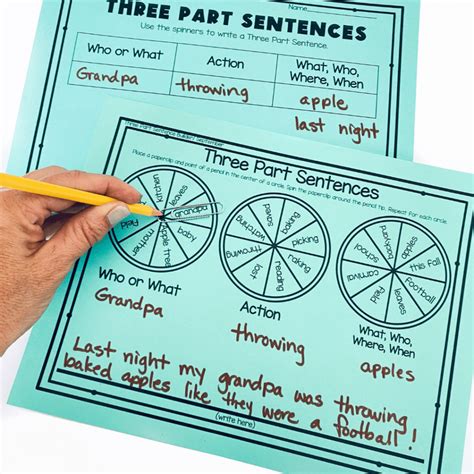 THREE PART SENTENCES
Name
Use the spinners to write a Three Part Sentence.
Who or What
Action
What, Who,
Where, When
Grandpa
throwing
apple
last night
Three Part Sentence Builders September
Three Part Sentences
Place a paperclip and point of a pencil in the center of a circle. Spin the paperclip around the pencil tip. Repeat for each circle.
kitchen
school
grandpa
baby
apple tree
mother
field
saved
watching
throwing
lost
reading
raking
picking
apples
this fall
football
leaves
field
carnival
backyard
Who or What
Grandpa
Action
throwing
What, Who,
Where, When
apples
Last night my grandpa was throwing
baked apples like they were a football!
(write here)